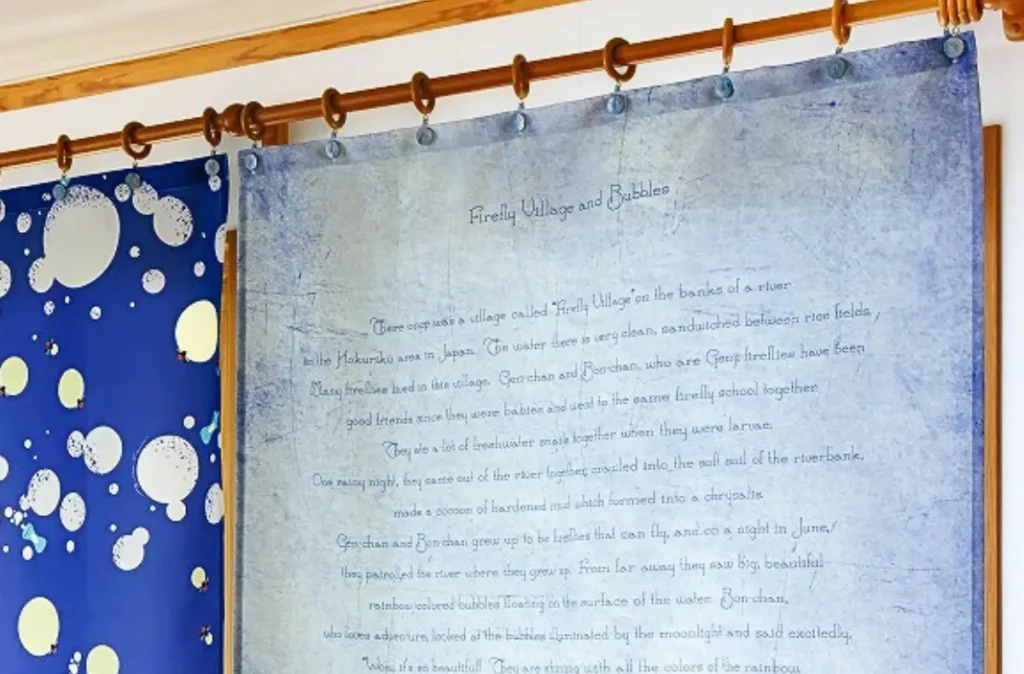 Firefly Village and Bubbles
There once was a village called "Firefly Village" on the banks of a river
in the Hokuriku area in Japan. The water there is very clean, sandwiched between rice fields,
Many fireflies lived in this village. Gen-chan and Bon-chan, who are Genji fireflies have been
good friends since they were babies and went to the same firefly school together.
They ate a lot of freshwater snails together when they were larvae.
One rainy night, they came out of the river together, crawled into the soft soil of the riverbank,
made a cocoon of hardened mud which formed into a chrysalis
Gen-chan and Bon-chan grew up to be fireflies that can fly, and on a night in June,
they patrolled the river where they grew up. From far away they saw big, beautiful
rainbow colored bubbles floating on the surface of the water. Bon-chan,
who loves adventure, looked at the bubbles illuminated by the moonlight and said excitedly,
"Wow, it's so beautiful! They are shining with all the colors of the rainbow